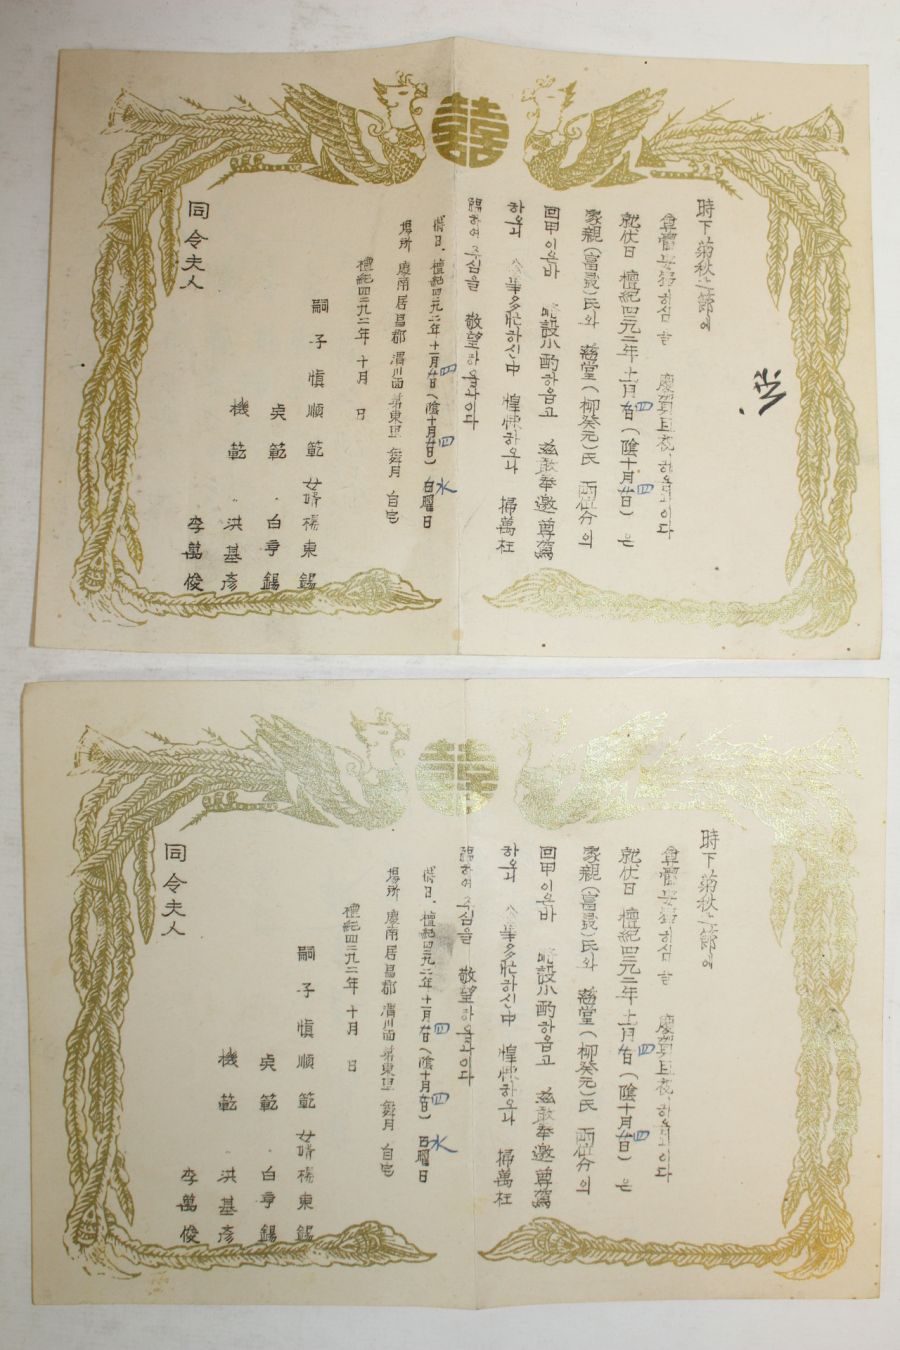 囍
時下菊秋之節에
尊體 하심 慶賀且祝 하옵나이다
就伏日 檀紀四二九二年 十一月 四日(陰十月 四日)은
家親(富 )氏와 慈堂(柳癸元)氏 兩 分의
回甲이온바 略設小酌하옵고 玆敢奉邀 尊駕
하오니 公私多忙하신中 惶悚하오나 掃萬枉
臨하여 주심을 敬望하옵나이다
日. 檀紀四二九二年 十一月 四日(陰十月 四日) 水曜日
場所 慶南居昌郡 渭川面 東里 舞月 自宅
檀紀四二九二年 十月 日
嗣子 愼順範 女婿 楊東錫
奭範 白亨錫
機範 洪基彦
李萬俊
同令夫人
囍
時下菊秋之節에
尊體 하심 慶賀且祝 하옵나이다
就伏日 檀紀四二九二年 十一月 四日(陰十月 四日)은
家親(富 )氏와 慈堂(柳癸元)氏 兩 分의
回甲이온바 略設小酌하옵고 玆敢奉邀 尊駕
하오니 公私多忙하신中 惶悚하오나 掃萬枉
臨하여 주심을 敬望하옵나이다
日. 檀紀四二九二年 十一月 四日(陰十月 四日) 水曜日
場所 慶南居昌郡 渭川面 東里 舞月 自宅
檀紀四二九二年 十月 日
嗣子 愼順範 女婿 楊東錫
奭範 白亨錫
機範 洪基彦
李萬俊
同令夫人